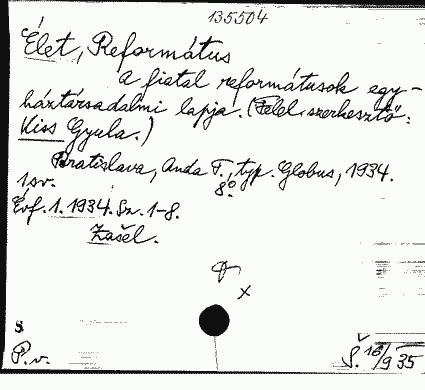 135504
Élet, Református
a fiatal reformátusok egy-
háztársadalmi lapja. (Felel. szerkesztő:
Kiss Gyula.)
Bratislava, Anda T., typ. Globus, 1934.
1 sv. 8°.
Évf. 1. 1934. Sz. 1-8.
Zašel.
x
s
P.v.
Š. 18/9 35